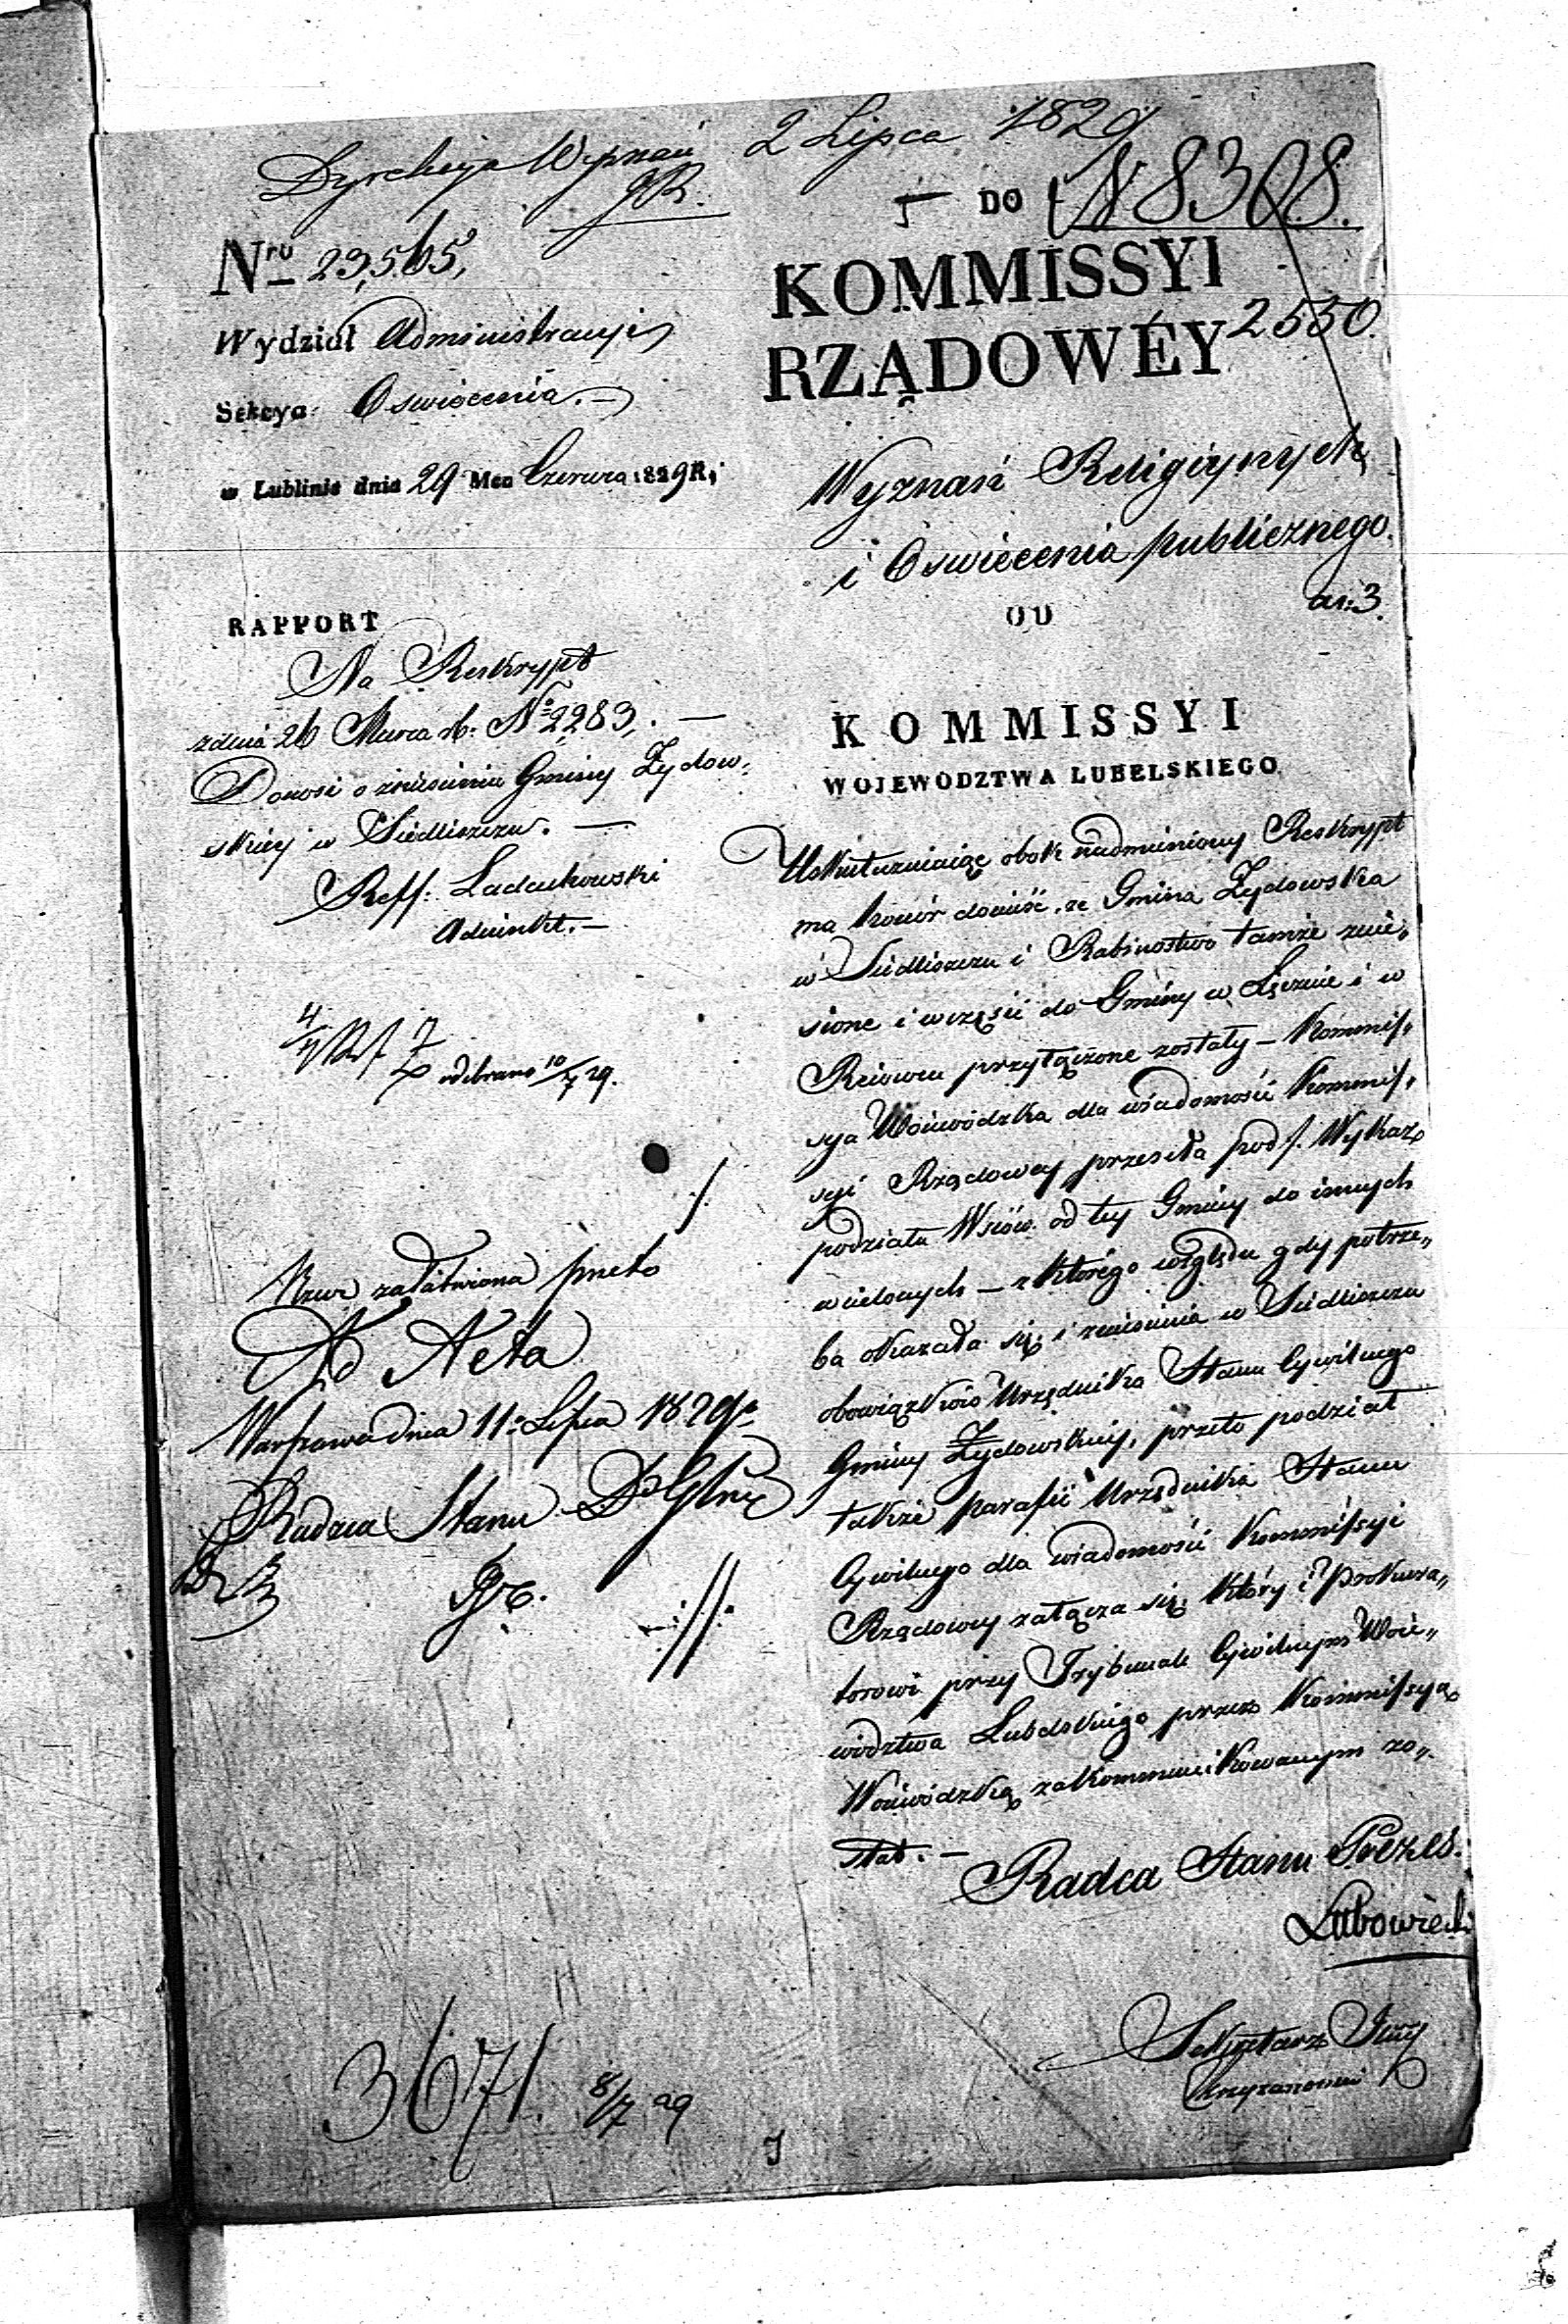 Dyrekcya Wyznań 2 Lipca 1829
N 8308.
Nro 23,565,
Wydział Administracyi
Sekcya Oswiecenia. —
w Lublinie dnia 29 Mca Czerwca 1829 R,
DO
KOMMISSYI
RZĄDOWÉY
2550.
Wyznań Religiynych
i Oswiecenia publicznego.
ar: 3.
OD
KOMMISSYI
WOJEWODZTWA LUBELSKIEGO
RAPPORT
Na Reskrypt
z dnia 26 Marca rb. No 2283. —
Donosi o zniesieniu Gminy Żydow-
skiey w Siedliszczu. —
Reff: Ladachowski
Adiunkt. —
odebrano 10/7 29.
załatwiona przeto
Ad Acta
Warszawa dnia 11. Lipca 1829 r.
Radca Stanu D Glny
Uskuteczniaiąc obok nadmieniony Reskrypt
ma honor donieść, że Gmina Żydowska
w Siedliszczu i Rabinostwo tamże znie„
sione i w części do Gminy w Łęcznie i w
Reiowcu przyłączone zostały — Kommis„
sya Woiewódzka dla wiadomości Kommis„
syi Rządowey przesyła pod ./. Wykaz
podziału Wsiów od tey Gminy do innych
wcielonych — z którego względu gdy potrze„
ba okazała się i zniesienia w Siedliszczu
obowiązków Urzędnika Stanu Cywilnego
Gminy Żydowskiey, przeto podział
także parafii Urzędnika Stanu
Cywilnego dla wiadomości Kommissyi
Rządowey załącza się, który i Prokura„
torowi przy Trybunale Cywilnym Woie„
wództwa Lubelskiego przez Kommissyą
Woiewódzką zakommunikowanym zo„
stał. —
Radca Stanu Prezes.
Lubowiecki
Sekretarz Jlny
3671. 8/7 29